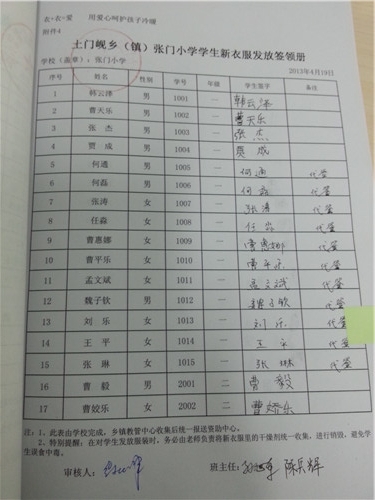 衣+衣=爱 用爱心呵护孩子冷暖
附件4
土门岘乡（镇）张门小学学生新衣服发放签领册
学校（盖章）：张门小学 2013年4月19日
序号 姓名 性别 学号 年级 学生签字 备注
1 韩云泽 男 1001 一 韩云泽
2 曹天乐 男 1002 一 曹天乐
3 张杰 男 1003 一 张杰
4 贾成 男 1004 一 贾成
5 何通 男 1005 一 何通 代签
6 何磊 男 1006 一 何磊 代签
7 张涛 女 1007 一 张涛 代签
8 任淼 女 1008 一 任淼 代签
9 曹惠娜 女 1009 一 曹惠娜 代签
10 曹平乐 女 1010 一 曹平乐 代签
11 孟文斌 女 1011 一 孟文斌 代签
12 魏子钦 男 1012 一 魏子钦 代签
13 刘乐 女 1013 一 刘乐 代签
14 王平 女 1014 一 王平 代签
15 张琳 女 1015 一 张琳 代签
16 曹毅 男 2001 二 曹毅
17 曹姣乐 女 2002 二 曹娇乐
注：1、此表由学校完成，乡镇教管中心收集后统一报送资助中心。
2、特别提醒：在对学生发放服装时，务必由老师负责将新衣里的干燥剂统一收集、进行销毁，避免学
生误食中毒。
审核人： 班主任： 陈兵辉